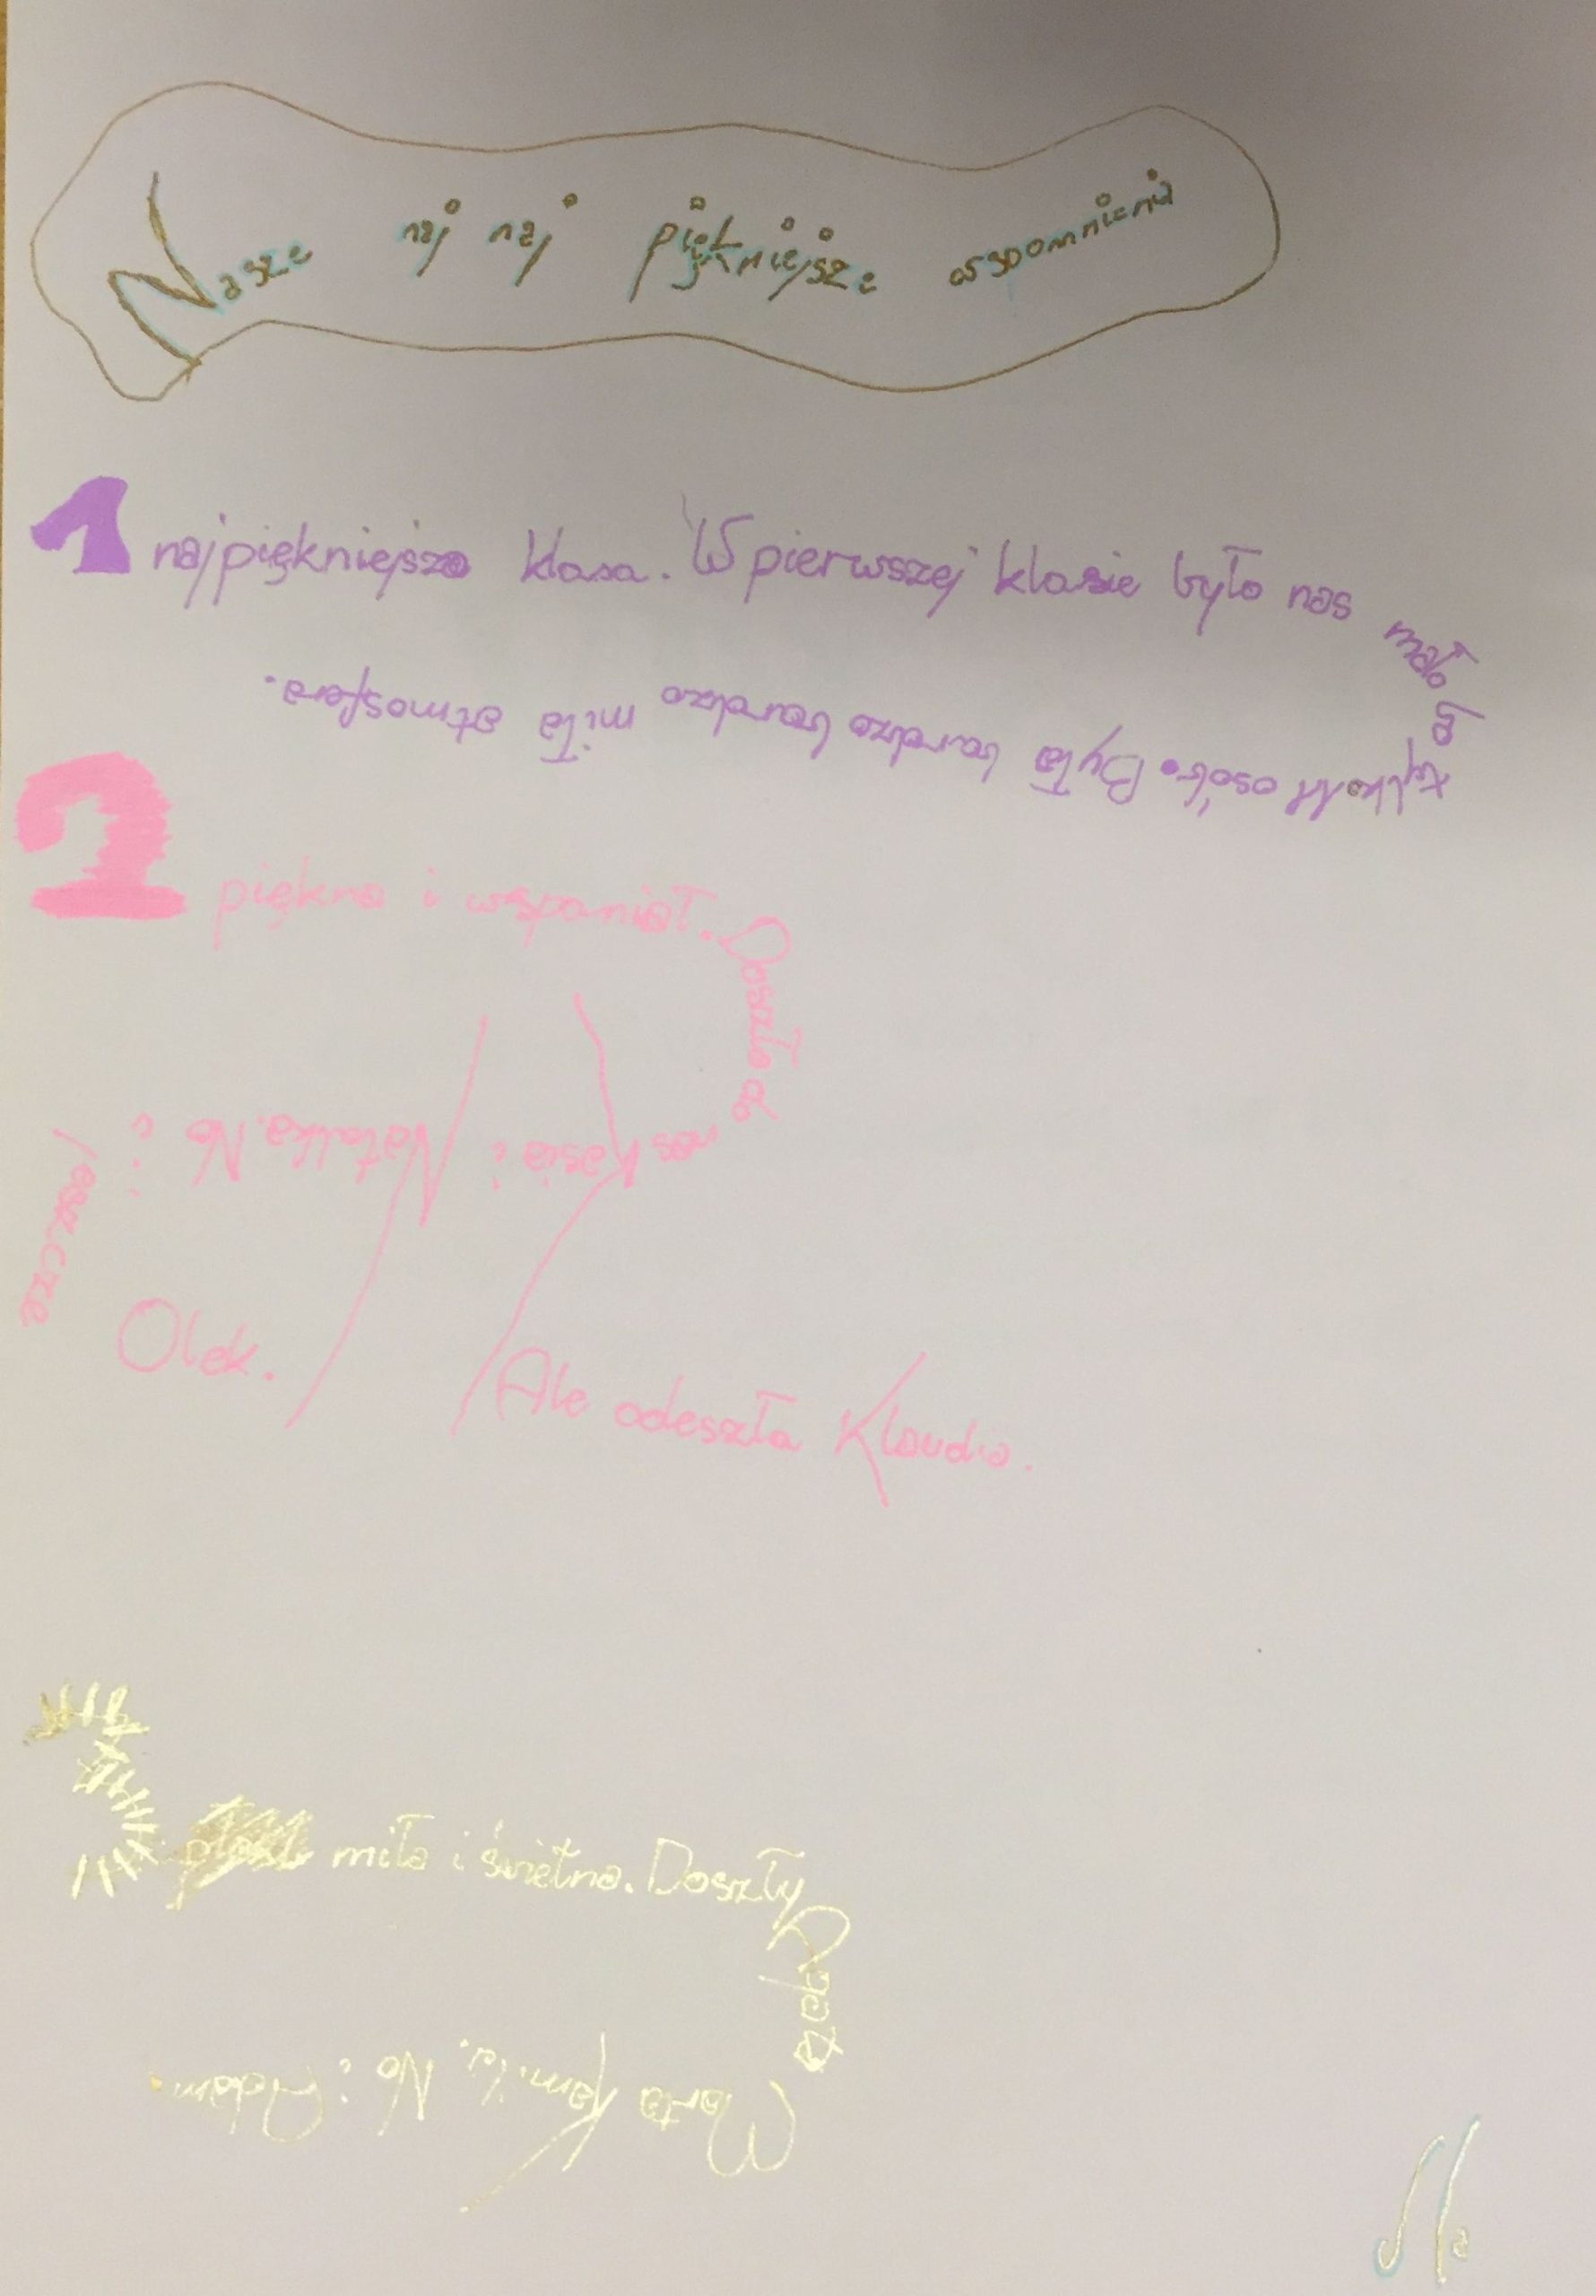 Nasze naj naj piękniejsze wspomnienia
1 najpiękniejsza klasa. W pierwszej klasie było nas mało bo
tylko 11 osób. Była bardzo bardzo miła atmosfera.
2 piękna i wspaniał. Doszła do
nas Kasia i Natalka. No i
jeszcze
Olek.
Ale odeszła Klaudia.
3 miła i świetna. Doszły
Agata
Marta Kamila. No i Adam.